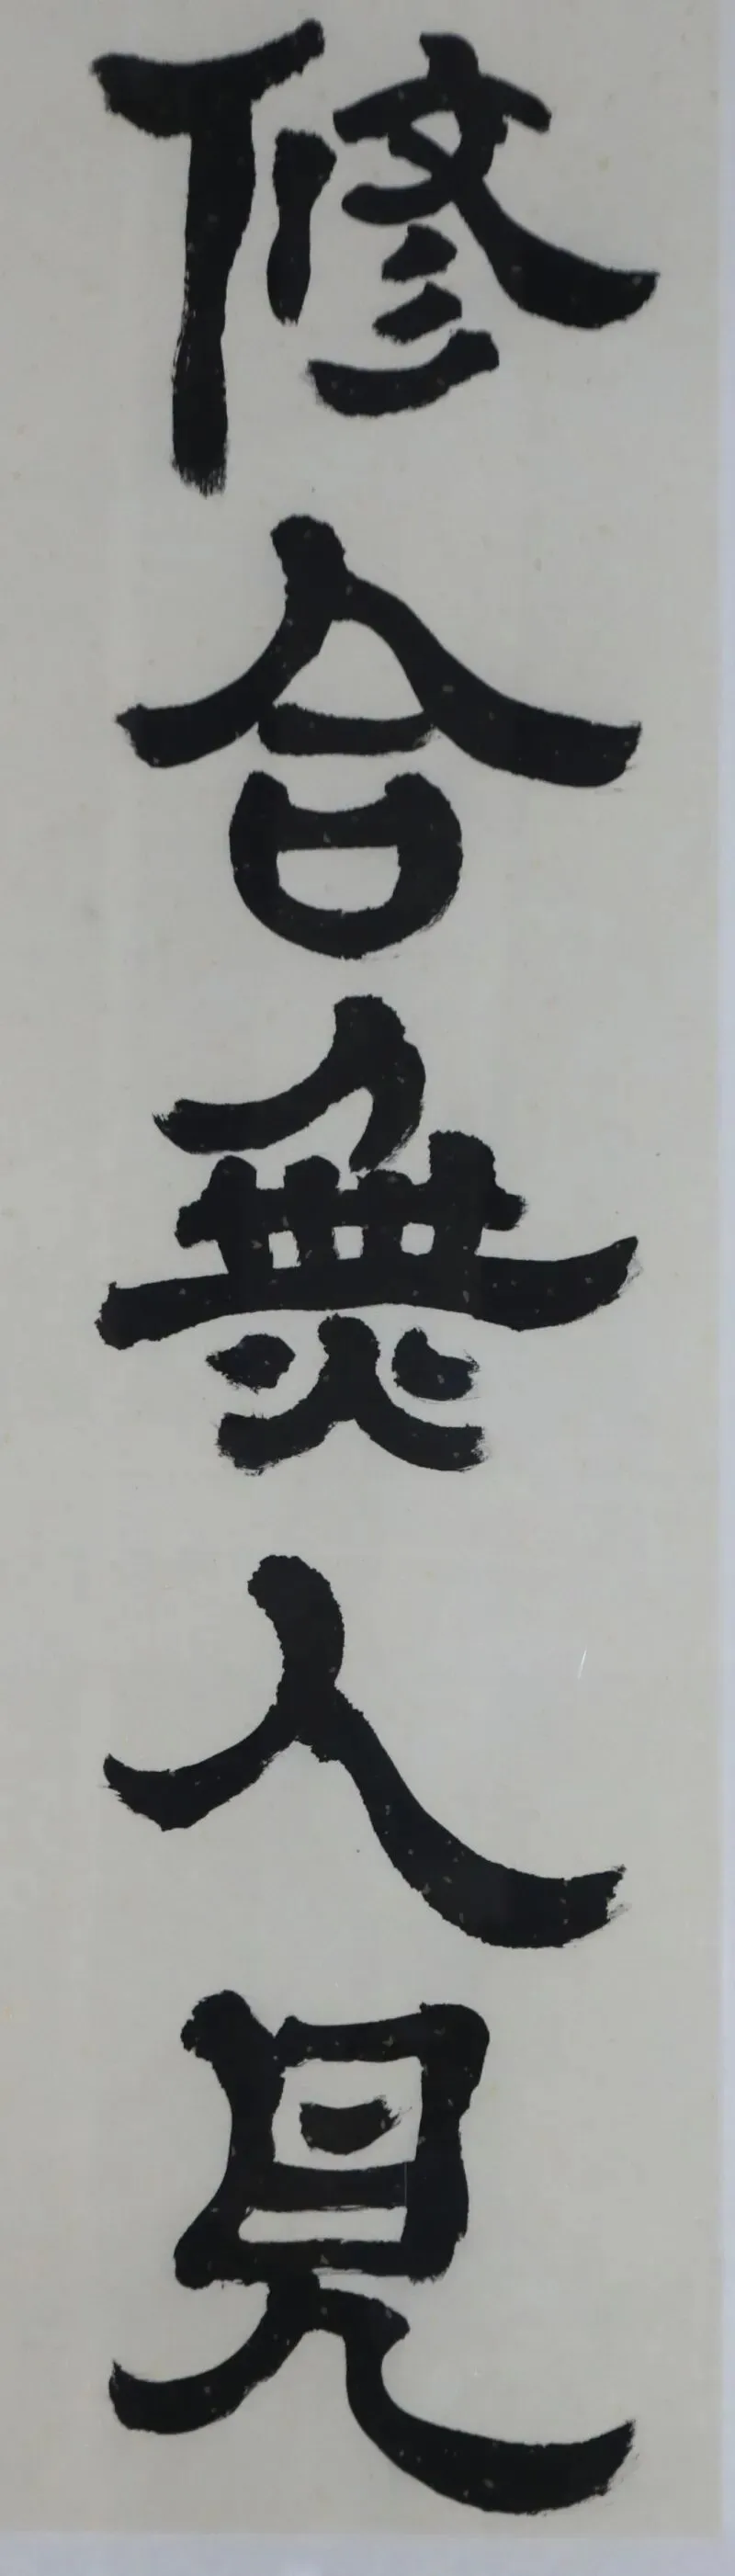 修合無人見